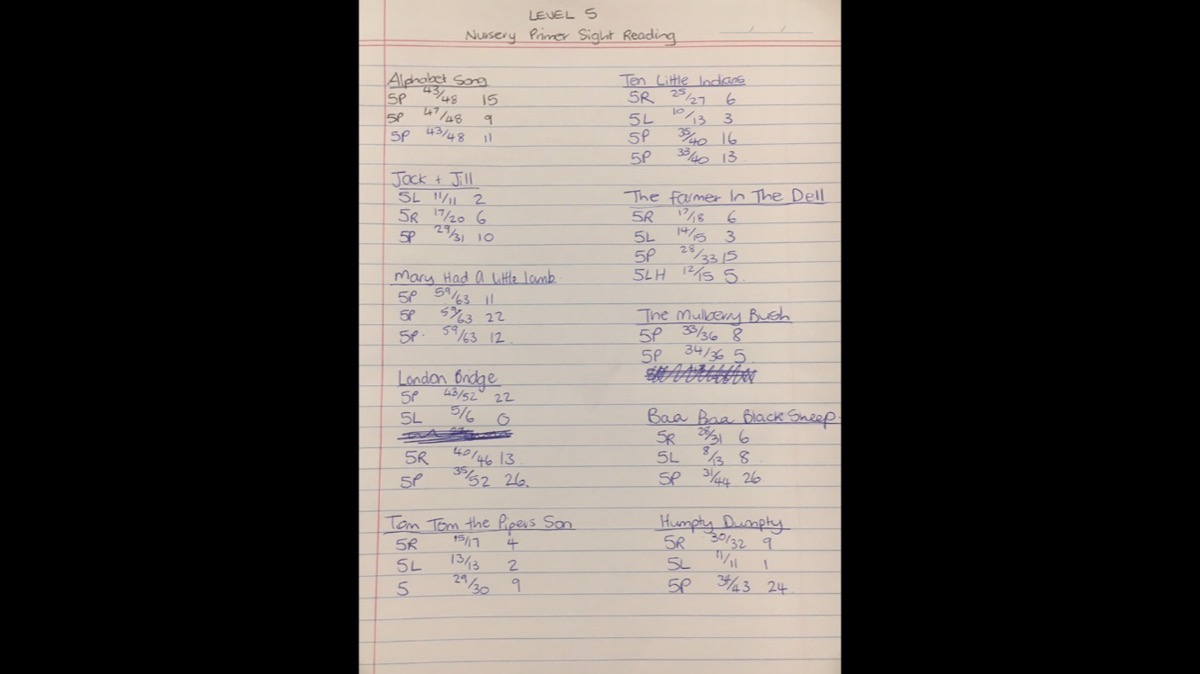 LEVEL 5
Nursery Primer Sight Reading
Alphabet Song
5P 43/48 15
5P 47/48 9
5P 43/48 11
Jack + Jill
5L 11/11 2
5R 17/20 6
5P 29/31 10
Mary Had A Little lamb.
5P 59/63 11
5P 59/63 22
5P. 59/63 12
London Bridge
5P 43/52 22
5L 5/6 0
5R 40/46 13
5P 35/52 26.
Tom Tom the Pipers Son
5R 15/17 4
5L 13/13 2
5 29/30 9
Ten Little Indians
5R 25/27 6
5L 10/13 3
5P 35/40 16
5P 33/40 13
The Farmer In The Dell
5R 17/18 6
5L 14/15 3
5P 28/33 15
5LH 12/15 5
The Mulberry Bush
5P 33/36 8
5P 34/36 5
Baa Baa Black Sheep.
5R 6
5L 8/13 8
5P 31/44 26
Humpty Dumpty
5R 30/32 9
5L 11/11 1
5P 24